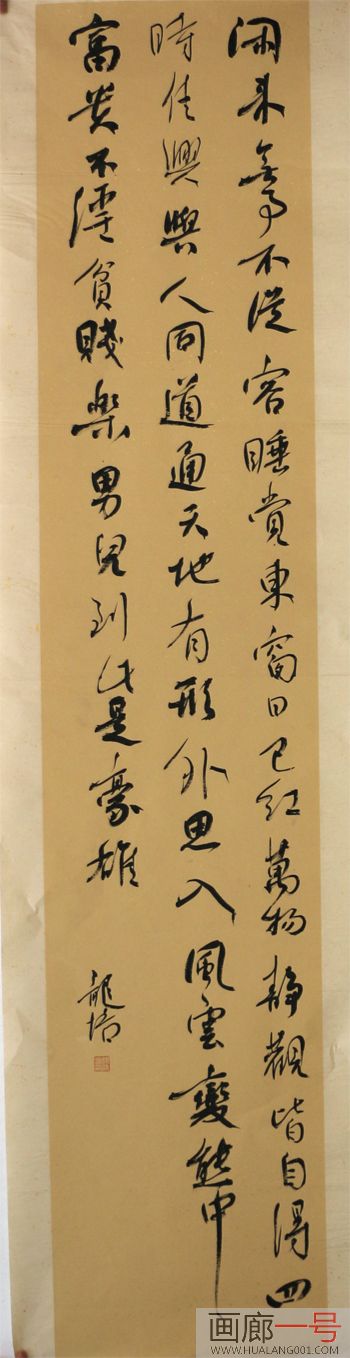 闲来無事不從容睡覺東窗日已红萬物静觀皆自得四
時佳興與人同道通天地有形外思入風雲變態中
富贵不淫貧賤樂男兒到此是豪雄
龍
画廊一号
WWW.HUALANG001.COM